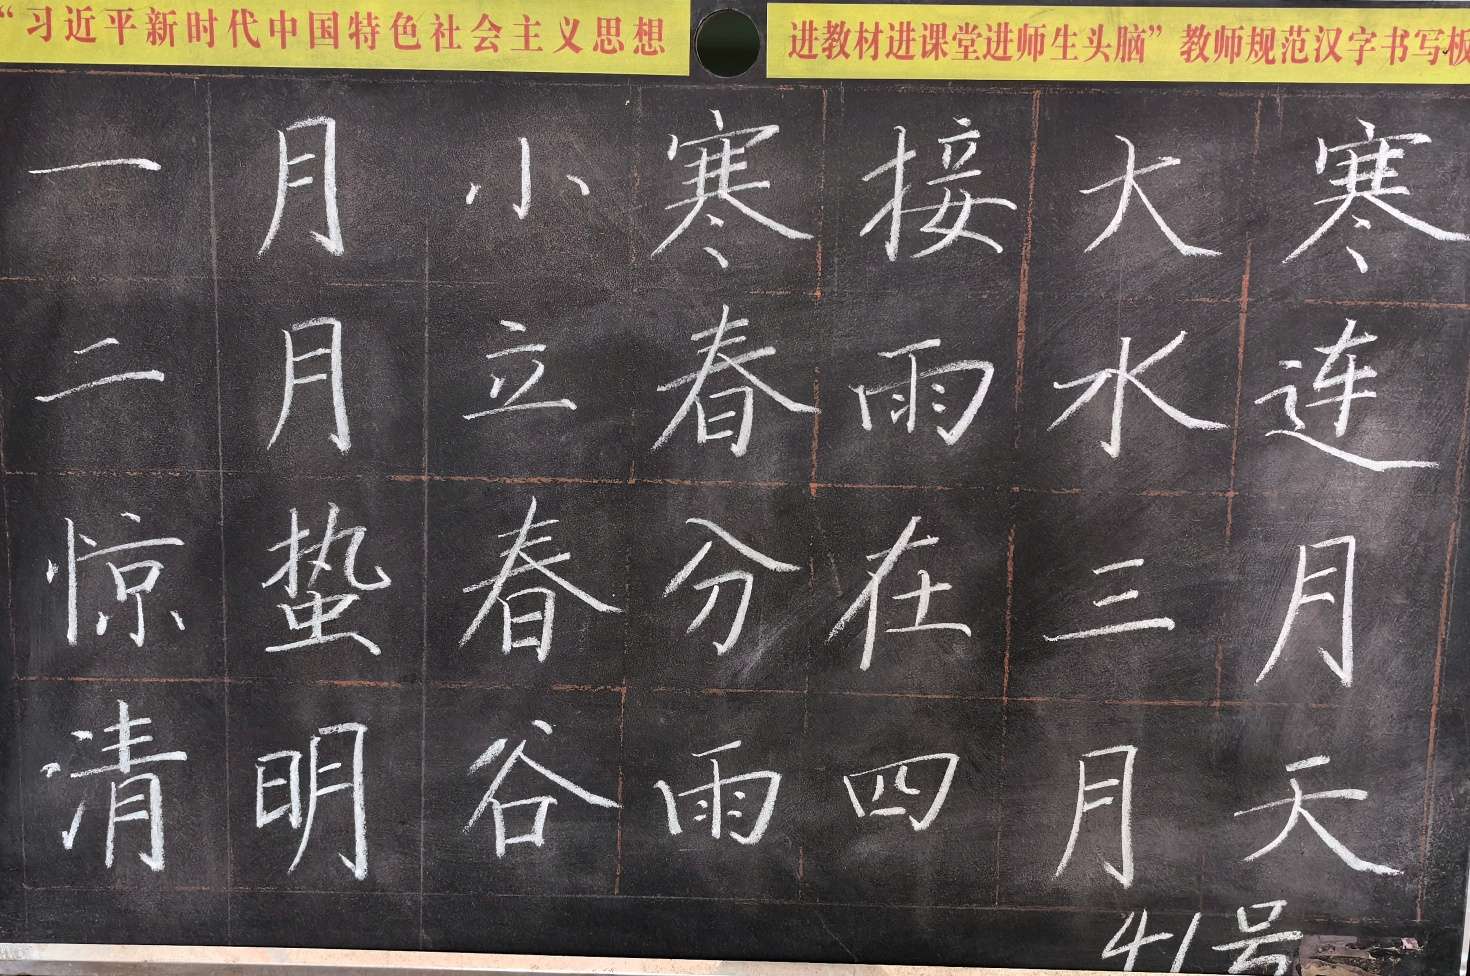 “习近平新时代中国特色社会主义思想 进教材进课堂进师生头脑”教师规范汉字书写板
一月小寒接大寒
二月立春雨水连
惊蛰春分在三月
清明谷雨四月天
41号